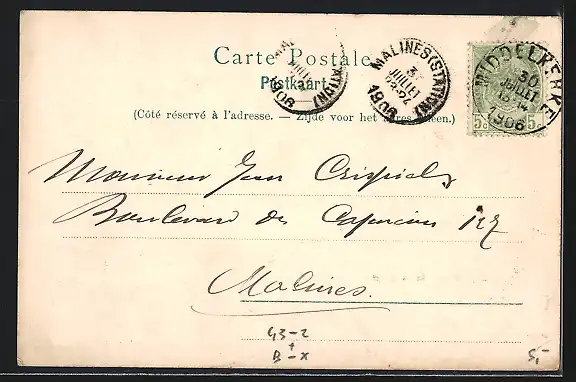 Carte Postale
Postkaart
(Côté réservé à l'adresse. — Zijde voor het adres alleen.)
MALINES (STATION)
3
JUILLET
1906
MALINES (STATION)
1906
MIDDELKERKE
30
JUILLET
1906
5c 5c
Monsieur Jean
Boulevard des Capucins
Malines
43-2
+
B-X
5,-